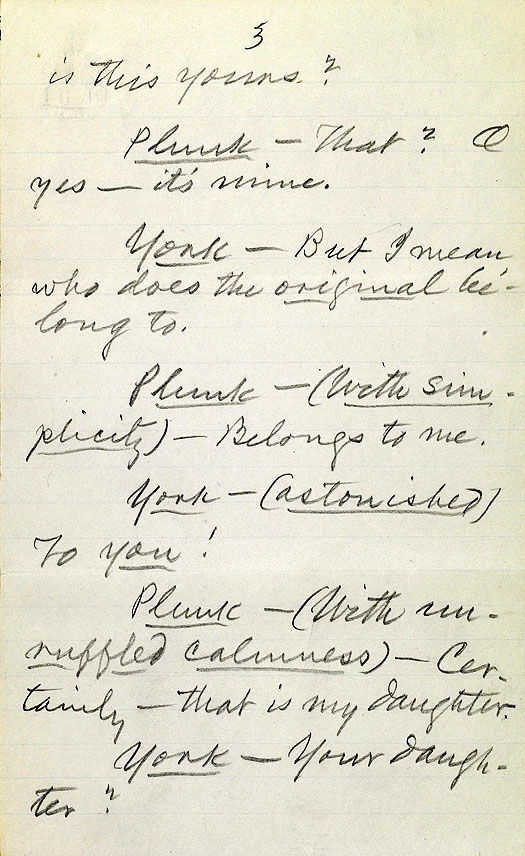 3
is this yours?
Plunk — That? O
yes — it's mine.
York — But I mean
who does the original be-
long to.
Plunk — (With sim-
plicity) — Belongs to me.
York — (astonished)
To you!
Plunk — (With un-
ruffled calmness) — Cer-
tainly — that is my daughter.
York — Your daugh-
ter?